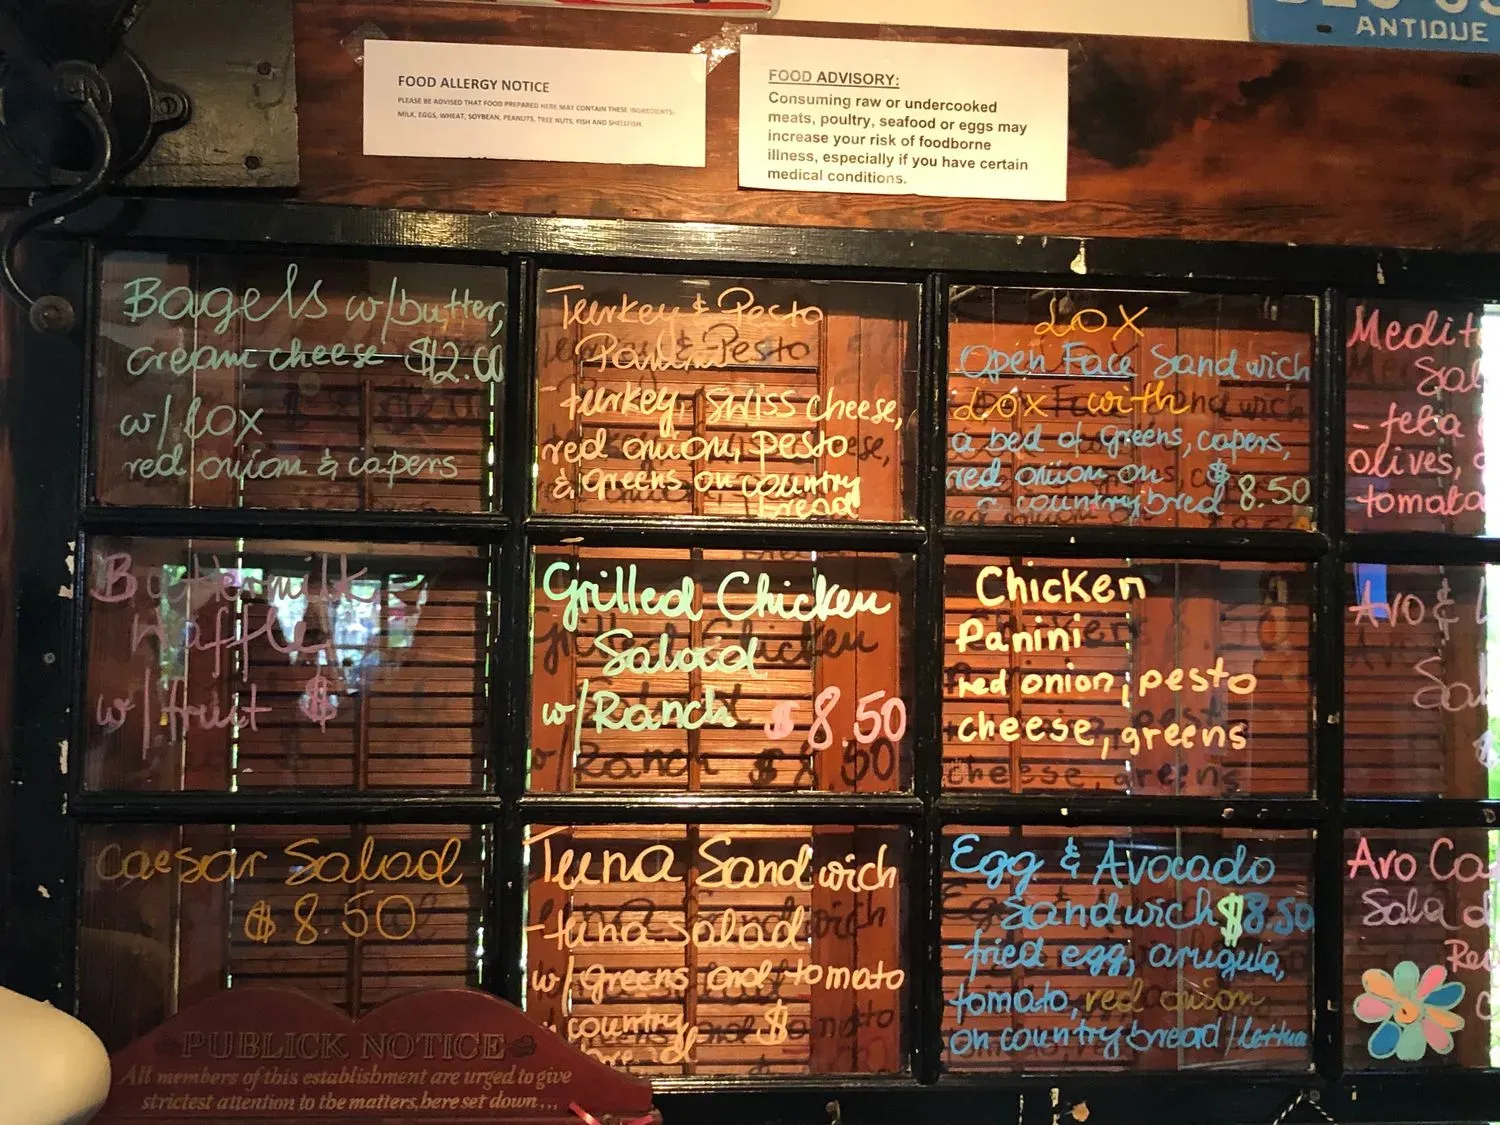 ANTIQUE
FOOD ALLERGY NOTICE
PLEASE BE ADVISED THAT FOOD PREPARED HERE MAY CONTAIN THESE INGREDIENTS:
MILK, EGGS, WHEAT, SOYBEAN, PEANUTS, TREE NUTS, FISH AND SHELLFISH.
FOOD ADVISORY:
Consuming raw or undercooked
meats, poultry, seafood or eggs may
increase your risk of foodborne
illness, especially if you have certain
medical conditions.
Bagels w/butter,
cream cheese $2.00
w/ lox
red onion & capers
Turkey & Pesto
Panini
- turkey, swiss cheese,
red onion, pesto
& greens on country
bread
LOX
Open Face Sandwich
Lox with
a bed of greens, capers,
red onion on $8.50
a country bred
Medit
Sal
- feta
olives,
tomato
Buttermilk
Waffle
w/ fruit $
Grilled Chicken
Salad
w/Ranch $8.50
Chicken
Panini
red onion, pesto
cheese, greens
Avo &
Caesar Salad
$8.50
Tuna Sandwich
-tuna salad
w/greens and tomato
country $
bread
Egg & Avocado
Sandwich $8.50
-fried egg, arugula,
tomato, red onion
on country bread/
Avo Ca
Salad
PUBLICK NOTICE
All members of this establishment are urged to give
strictest attention to the matters, here set down...